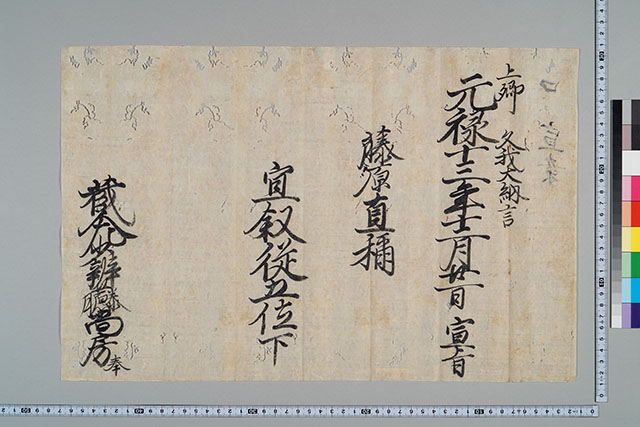 口 宣案
上卿 久我大納言
元禄十三年十二月廿一日 宣旨
藤原直
宣叙従五位下
蔵人 少辨藤原尚房 奉